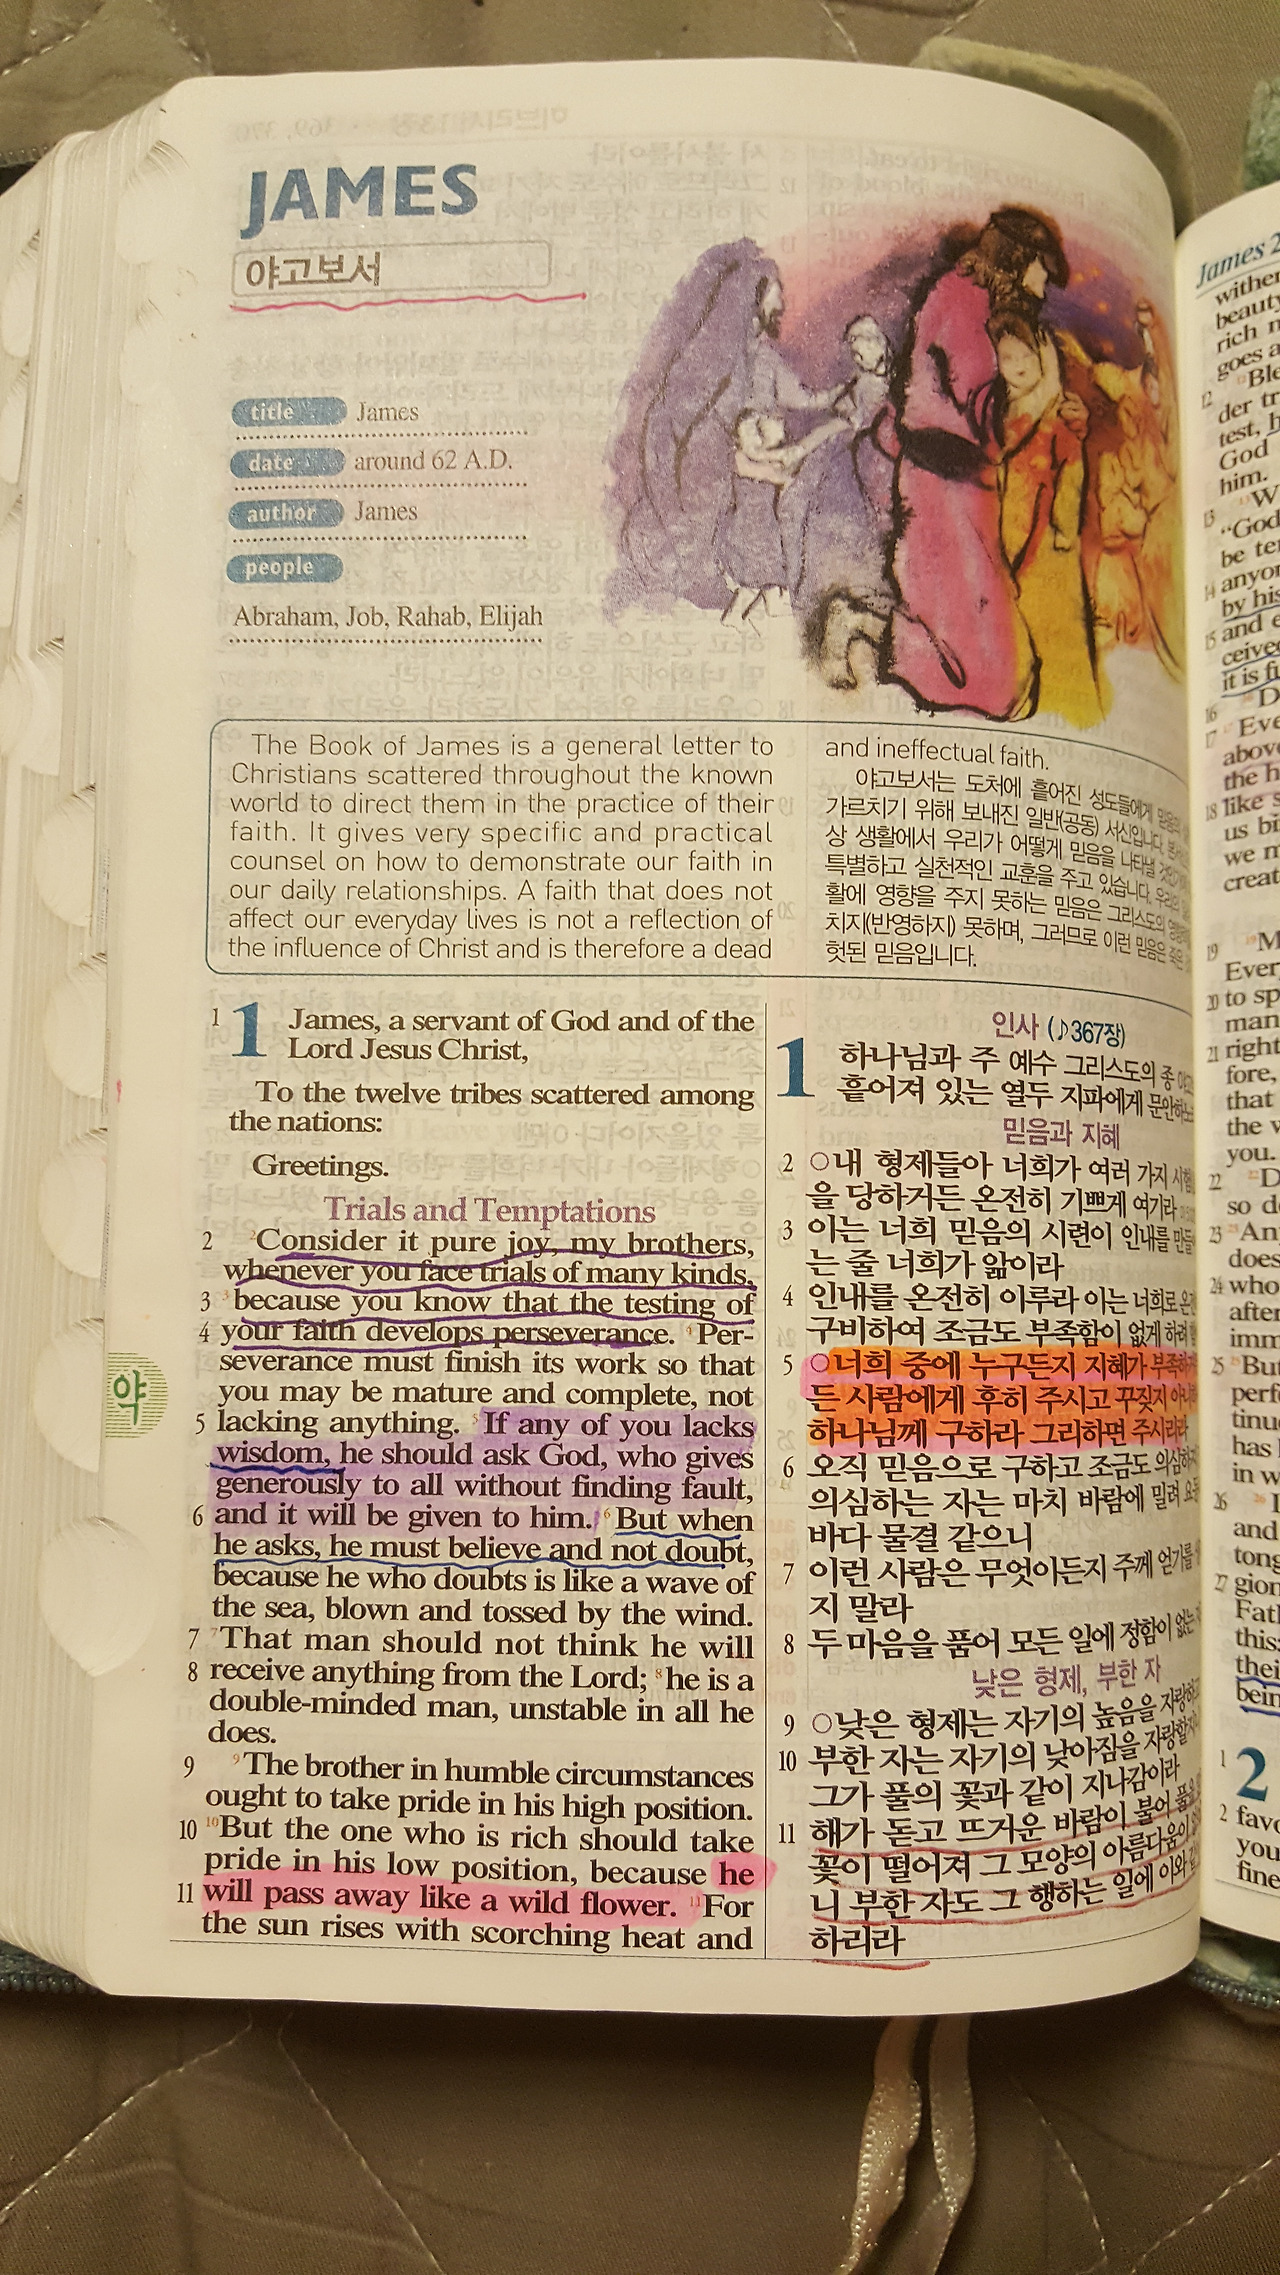 JAMES
야고보서
title James
date around 62 A.D.
author James
people
Abraham, Job, Rahab, Elijah
The Book of James is a general letter to
Christians scattered throughout the known
world to direct them in the practice of their
faith. It gives very specific and practical
counsel on how to demonstrate our faith in
our daily relationships. A faith that does not
affect our everyday lives is not a reflection of
the influence of Christ and is therefore a dead
and ineffectual faith.
야고보서는 도처에 흩어진 성도들에게
가르치기 위해 보내진 일반(공동) 서신입니다.
상 생활에서 우리가 어떻게 믿음을 나타낼 것인가
특별하고 실천적인 교훈을 주고 있습니다. 우리의
활에 영향을 주지 못하는 믿음은 그리스도의 영향
치지(반영하지) 못하며, 그러므로 이런 믿음은 죽은
헛된 믿음입니다.
1 1 James, a servant of God and of the
Lord Jesus Christ,
To the twelve tribes scattered among
the nations:
Greetings.
Trials and Temptations
2 2Consider it pure joy, my brothers,
whenever you face trials of many kinds,
3 3because you know that the testing of
4 your faith develops perseverance. 4Per-
severance must finish its work so that
you may be mature and complete, not
5 lacking anything. 5If any of you lacks
wisdom, he should ask God, who gives
generously to all without finding fault,
6 and it will be given to him. 6But when
he asks, he must believe and not doubt,
because he who doubts is like a wave of
the sea, blown and tossed by the wind.
7 7That man should not think he will
8 receive anything from the Lord; 8he is a
double-minded man, unstable in all he
does.
9 9The brother in humble circumstances
ought to take pride in his high position.
10 10But the one who is rich should take
pride in his low position, because he
11 will pass away like a wild flower. 11For
the sun rises with scorching heat and
약
인사 (♪367장)
1 하나님과 주 예수 그리스도의 종
흩어져 있는 열두 지파에게 문안하노
믿음과 지혜
2 ○내 형제들아 너희가 여러 가지 시험
을 당하거든 온전히 기쁘게 여기라
3 이는 너희 믿음의 시련이 인내를 만들
는 줄 너희가 앎이라
4 인내를 온전히 이루라 이는 너희로 온전
구비하여 조금도 부족함이 없게 하려
5 ○너희 중에 누구든지 지혜가 부족하
든 사람에게 후히 주시고 꾸짖지 아니
하나님께 구하라 그리하면 주시리라
6 오직 믿음으로 구하고 조금도 의심하지
의심하는 자는 마치 바람에 밀려 요동
바다 물결 같으니
7 이런 사람은 무엇이든지 주께 얻기를
지 말라
8 두 마음을 품어 모든 일에 정함이 없는
낮은 형제, 부한 자
9 ○낮은 형제는 자기의 높음을 자랑하고
10 부한 자는 자기의 낮아짐을 자랑할지
그가 풀의 꽃과 같이 지나감이라
11 해가 돋고 뜨거운 바람이 불어 풀을
꽃이 떨어져 그 모양의 아름다움이
니 부한 자도 그 행하는 일에 이와 같
하리라
James 2
12
him.
13
"God
14 anyon
by his
15 and e
it is fu
16
17
above
the h
18 like s
us bi
we m
creat
19
Ever
20 to sp
man
21 right
fore,
that
the w
you.
22
so d
23 An
does
24 who
after
imm
25 But
perf
tinu
has
in w
26
and
tong
27 gion
Fath
this:
thei
bein
1 2
2 favo
you
fine